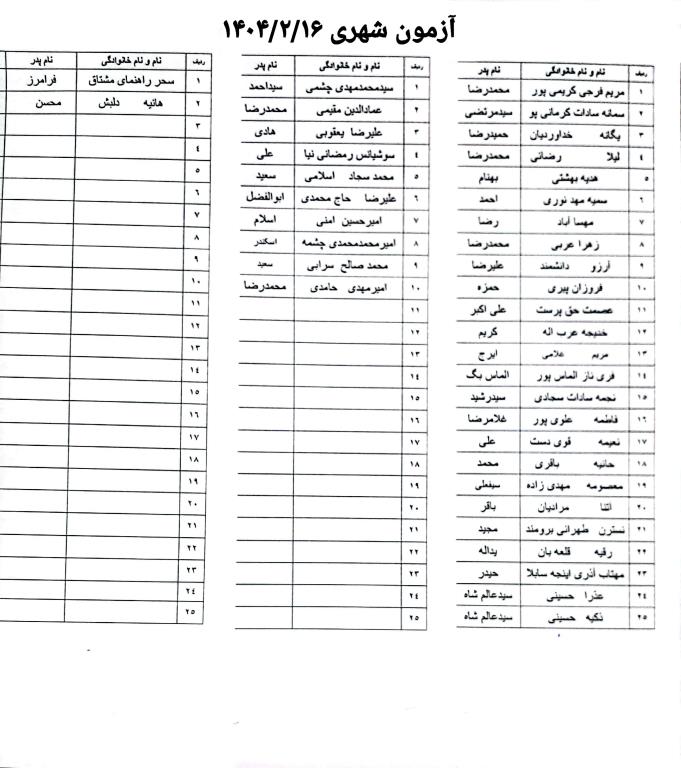 آزمون شهری ۱۴۰۴/۲/۱۶
ردیف نام و نام خانوادگی نام پدر
۱ مریم فرجی کریمی پور محمدرضا
۲ سمانه سادات کرمانی پو سیدمرتضی
۳ یگانه خداوردیان حمیدرضا
۴ لیلا رضائی محمدرضا
۵ هدیه بهشتی بهنام
۶ سمیه مهد نوری احمد
۷ مهسا آباد رضا
۸ زهرا عربی محمدرضا
۹ آرزو دانشمند علیرضا
۱۰ فروزان پیری حمزه
۱۱ عصمت حق پرست علی اکبر
۱۲ خدیجه عرب اله کریم
۱۳ مریم غلامی ایرج
۱۴ فری ناز الماس پور الماس بگ
۱۵ نجمه سادات سجادی سیدرشید
۱۶ فاطمه علوی پور غلامرضا
۱۷ نعیمه قوی دست علی
۱۸ حانیه باقری محمد
۱۹ معصومه مهدی زاده سیفعلی
۲۰ آتنا مرادیان باقر
۲۱ نسترن طهرانی برومند مجید
۲۲ رقیه قلعه بان یداله
۲۳ مهتاب آذری اینجه سابلا حیدر
۲۴ عذرا حسینی سیدعالم شاه
۲۵ ذکیه حسینی سیدعالم شاه
ردیف نام و نام خانوادگی نام پدر
۱ سیدمحمدمهدی چشمی سیداحمد
۲ عمادالدین مقیمی محمدرضا
۳ علیرضا یعقوبی هادی
۴ سوشیانس رمضانی نیا علی
۵ محمد سجاد اسلامی سعید
۶ علیرضا حاج محمدی ابوالفضل
۷ امیرحسین امنی اسلام
۸ امیرمحمدمحمدی چشمه اسکندر
۹ محمد صالح سرابی سعید
۱۰ امیرمهدی حامدی محمدرضا
۱۱
۱۲
۱۳
۱۴
۱۵
۱۶
۱۷
۱۸
۱۹
۲۰
۲۱
۲۲
۲۳
۲۴
۲۵
ردیف نام و نام خانوادگی نام پدر
۱ سحر راهنمای مشتاق فرامرز
۲ هانیه دلبش محسن
۳
۴
۵
۶
۷
۸
۹
۱۰
۱۱
۱۲
۱۳
۱۴
۱۵
۱۶
۱۷
۱۸
۱۹
۲۰
۲۱
۲۲
۲۳
۲۴
۲۵